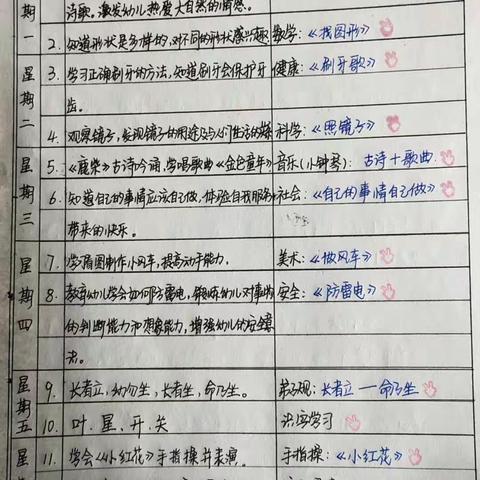 期 诗歌。激发幼儿热爱大自然的情感。
一 2. 知道形状是多样的,对不同的形状感兴趣 数学:《找图形》
星 3. 学习正确刷牙的方法,知道刷牙会保护牙 健康:《刷牙歌》
期 齿。
二 4. 观察镜子,发现镜子的用途及与人们生活的 科学:《照镜子》
星 5. 《鹿柴》古诗吟诵,学唱歌曲《金色童年》 音乐(小钟琴):古诗+歌曲
期 6. 知道自己的事情应该自己做,体验自我服务 社会:《自己的事情自己做》
三 带来的快乐。
星 7. 学看图制作小风车,提高动手能力。 美术:《做风车》
期 8. 教育幼儿学会如何防雷电,锻炼幼儿对事物 安全:《防雷电》
四 的判断能力和想象能力,增强幼儿的安全意
识。
星 9. 长者立,幼勿坐,长者坐,命乃坐。 弟子规:长者立——命乃坐
期
五 10. 叶、星、开、关 识字学习
星 11. 学会《小红花》手指操并表演。 手指操:《小红花》
期